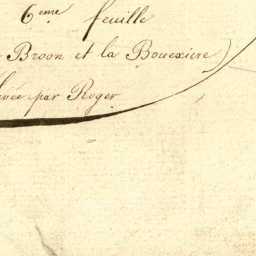 6eme feuille
Broon et la Bouexiere)
par Roger